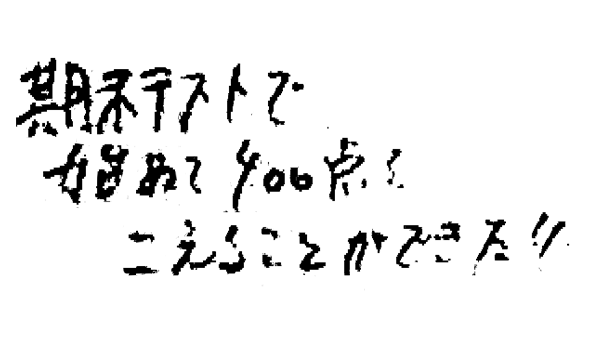 期末テストで
始めて400点を
こえることができた!!